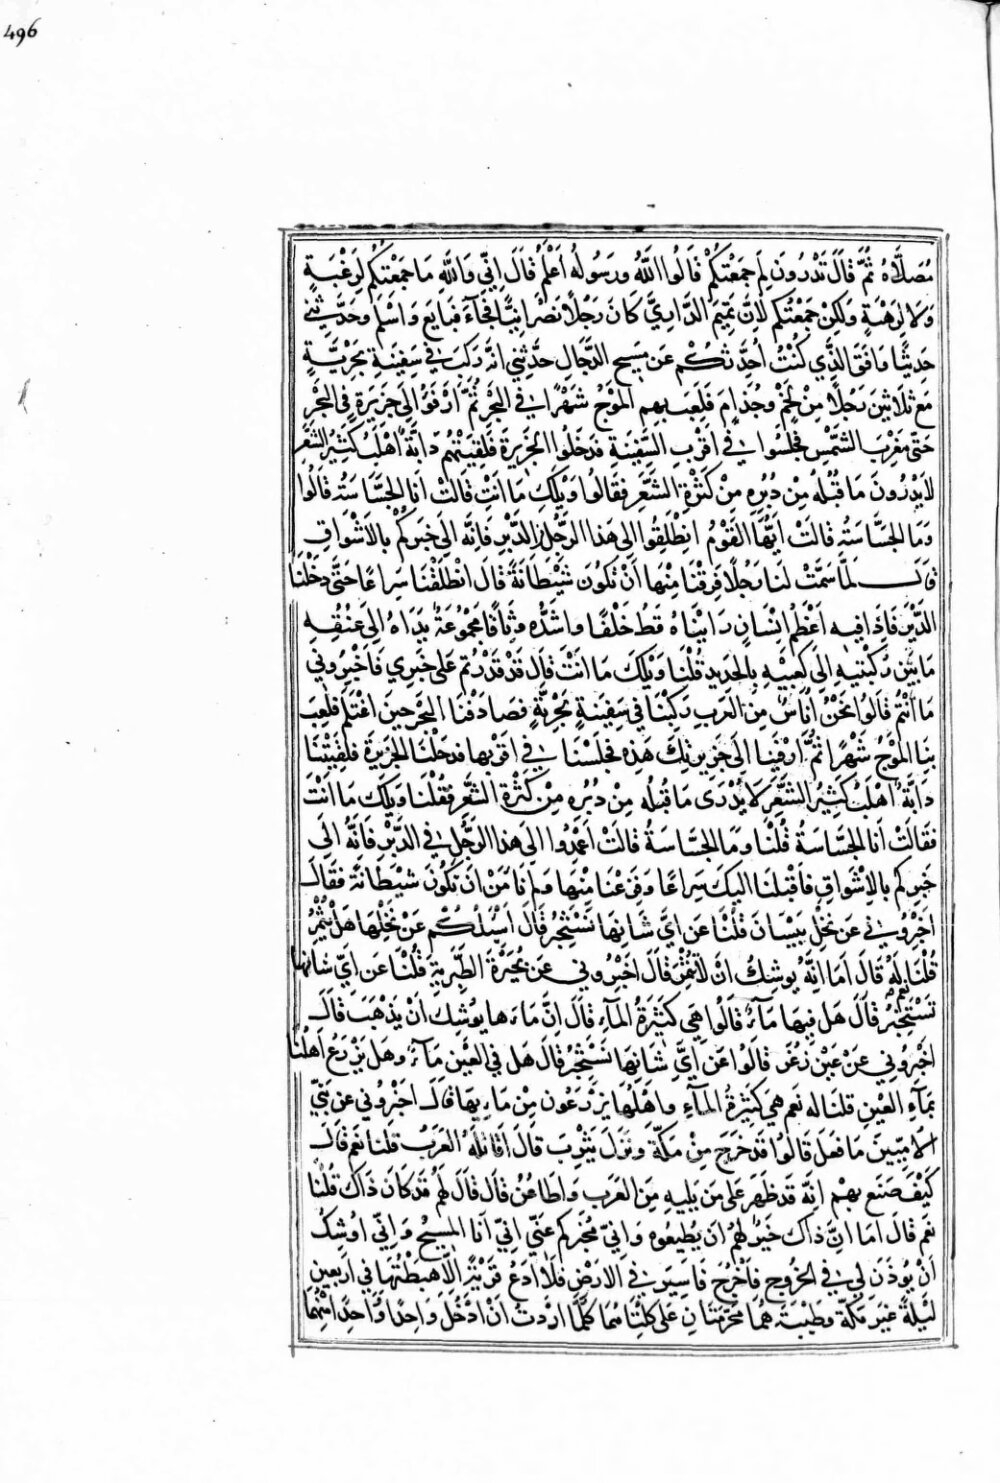 496
مُصَلَّاهُ ثُمَّ قَالَ تَدْرُونَ لِمَ جَمَعْتُكُمْ قَالُوا اللَّهُ ورَسُولُهُ أَعْلَمُ قَالَ إِنِّي وَاللَّهِ مَا جَمَعْتُكُم لِرَغْبَةٍ
وَلَا لِرَهْبَةٍ وَلَكِنْ جَمَعْتُكُم لِأَنَّ تَمِيمَ الدَّارِيَّ كَانَ رَجُلًا نَصْرَانِيًّا فَجَآءَ فَبَايَعَ وَاسْلَمَ وَحَدَّثَنِي
حَدِيثًا وَافَقَ الَّذِي كُنْتُ أُحَدِّثُكُمْ عَن مَسِيحِ الدَّجَّالِ حَدَّثَنِي انَّهُ رَكِبَ فِي سَفِينَةٍ بَحْرِيَّةٍ
مَعَ ثَلَاثِينَ رَجُلًا مِنْ لَخْمٍ وَجُذَامَ فَلَعِبَ بِهِمِ الْمَوْجُ شَهْرًا فِي الْبَحْرِ ثُمَّ أَرْفَؤُا إِلَى جَزِيرَةٍ فِي الْبَحْرِ
حَتَّى مَغْرِبَ الشَّمْسِ فَجَلَسُوا فِي اقْرُبِ السَّفِينَةِ فَدَخَلُوا الجَزِيرَةَ فَلَقِيَتْهُمْ دَابَّةٌ أَهْلَبُ كَثِيرُ الشَّعَرِ
لَا يَدْرُونَ مَا قُبُلُه مِنْ دُبُرِهِ مِنْ كَثْرَةِ الشَّعَرِ فقَالُوا وَيْلَكِ مَا أَنْتِ قَالَتْ أَنَا الجَسَّاسَةُ قَالُوا
وَمَا الجَسَّاسَةُ قَالَتْ أَيُّهَا القَوْمُ انْطَلِقُوا الى هَذا الرَّجُلِ في الدَّيْرِ فَانَّه إِلَى خَبَرِكُمْ بالأَشْوَاقِ
قال لَمَّا سَمَّتْ لَنا رَجُلًا فَرِقْنَا مِنْهَا أَنْ تَكُونَ شَيْطَانَةً قَالَ انْطَلَقْنَا سِرَاعًا حَتَّى دَخَلْنَا
الدَّيْرَ فَإِذَا فِيه أَعْظَمُ انْسَانٍ رَايْنَاهُ قَط خَلْقًا وَاشَدُّه وِثَاقًا مَجْمُوعَةٌ يَدَاهُ الى عُنُقِهِ
مَا بَيْنَ رُكْبَتَيهِ إِلَى كَعبَيْهِ بالحَدِيد قُلْنَا وَيْلَكَ مَا انْتَ قَالَ قَدْ قَدَرْتُمْ عَلَى خَبَرِي فَاخْبِرُونِي
مَا أَنْتُمْ قَالُوا نَحْنُ أُنَاسٌ مِنَ العَرَبِ رَكِبْنَا فِي سَفِينَةٍ بَحْرِيَّةٍ فَصَادَفْنَا البَحْرَ حِينَ اغْتَلَمَ فَلَعِبَ
بِنَا المَوْجُ شَهْرًا ثُمَّ أَرْفَيْنَا إِلَى جَزِيرَتِكَ هَذِهِ فَجَلَسْنَا فِي اقْرُبِهَا فدَخَلْنَا الجَزِيرَةَ فَلَقِيَتْنَا
دَابَّةٌ أَهْلَبُ كَثِيرُ الشَّعَرِ لَا يُدْرَى مَا قُبُلُه مِنْ دُبُرِهِ مِنْ كَثْرَةِ الشَّعَرِ فَقُلْنَا وَيْلَكِ مَا انْتِ
فَقَالَتْ أَنَا الجَسَّاسَةُ قُلْنَا وَمَا الجَسَّاسَةُ قَالَتْ أَعْمِدُوا إِلَى هَذا الرَّجُلِ فِي الدَّيْرِ فَانَّهُ الى
خَبَرِكم بِالاشْوَاقِ فَاقْبَلْنا الَيكَ سِرَاعًا وَفَزِعْنَا مِنْهَا وَلم نَامَن انَ تَكُونَ شَيْطَانَة فقَالَ
اخْبِرُونِي عَن نَخْلِ بَيْسَانَ قُلْنَا عَن ايِّ شَانِهَا تَسْتَخْبِرُ قَالَ أَسْئَلُكُمْ عَن نَخْلِهَا هَلْ يُثْمِرُ
قُلْنَا لَهُ نعم قَالَ أَمَا انَّهُ يُوشِكُ انْ لَا تُثْمِرَ قَالَ اخْبِرُونِي عَن بُحَيْرَةِ الطَّبَرِيَّةِ قُلْنَا عَن ايِّ شَانِهَا
تَسْتَخْبِرُ قَالَ هَل فِيهَا مَآءٌ قَالُوا هِيَ كَثِيرَةُ المَآءِ قَالَ انَّ مَاءَها يُوشِكُ انْ يَذْهَبَ قَالَ
اخْبِرُونِي عَنْ عَيْنِ زُغَرَ قَالُوا عَن ايِّ شَانِهَا تَسْتَخْبِرُ قَالَ هَل فِي العَيْنِ مَآءٌ وهَل يَزْرَعُ أَهْلُهَا
بمَآءِ العَيْنِ قلنَا له نَعم هِيَ كَثِيرَةُ المَآءِ واهْلُهَا يَزْرَعُون مِنْ مَايِهَا قَالَ اخْبِرُونِي عَن نَبِيِّ
الأُمِّيِّينَ مَا فَعَلَ قَالُوا قَد خَرَجَ مِنْ مَكَّةَ ونَزَلَ يَثْرِبَ قَالَ أَقَاتَلَهُ العَرَبُ قُلنَا نَعَم قَالَ
كَيْفَ صَنَعَ بِهِمْ انَّهُ قَد ظَهَرَ عَلَى مَن يَلِيهِ مِنَ العَرَبِ وَاطَاعُوهُ قَالَ قَالَ لَهُم قَدْ كَانَ ذَاكَ قُلْنَا
نَعَم قَالَ امَا انَّ ذَاكَ خَيْرٌ لَهُمُ ان يُطِيعُوهُ وَانِّي مُخْبِرُكم عَنِّي انِّي أَنَا المَسِيحُ وَانِّي اوشِكُ
أَنْ يُوذَنَ لِي فِي الخُرُوجِ فَأَخْرُجَ فَاسِيَر فِي الارَضِ فَلَا ادَعُ قَرْيَةً الَّا هَبَطْتُهَا فِي ارْبَعِين
لَيْلَةً غَيْرَ مَكَّةَ وطَيْبَةَ هُمَا مُحَرَّمَتَانِ عَلَيَّ كِلْتَاهُمَا كُلَّمَا ارَدتُ انْ ادْخُلَ وَاحِدًا وَّاحِدًا مِنْهُمَا